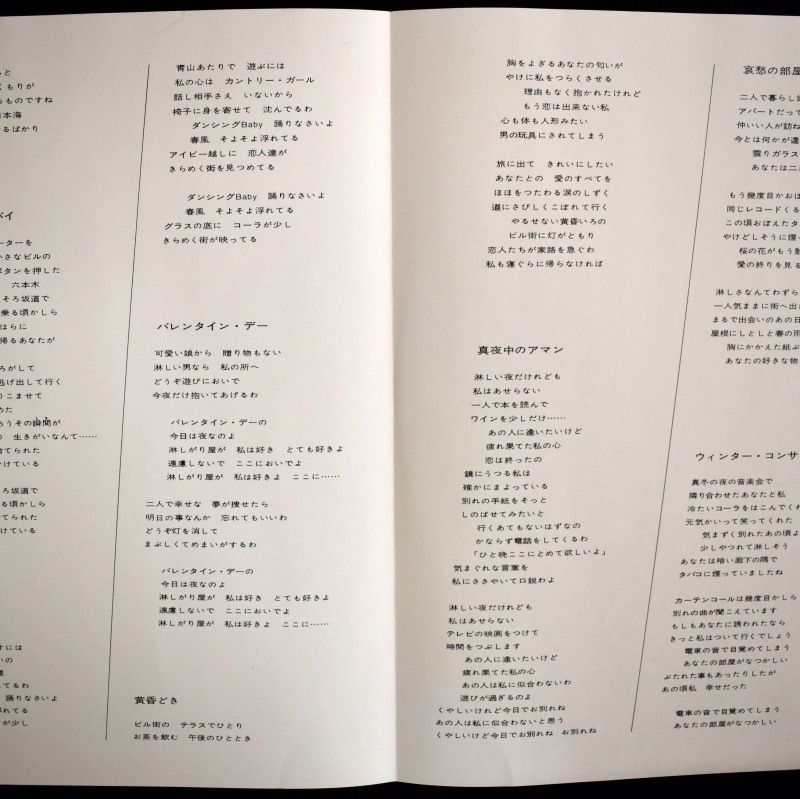 と
くもりが
ものですね
日本海
るばかり
バイ
ーターを
小さなビルの
ボタンを押した
六本木
そろ坂道で
乗る頃かしら
はらに
帰るあなたが
ろがして
逃げ出して行く
りこませて
めた
ろうその瞬間が
生きがいなんて……
捨てられた
かけている
ろ坂道で
る頃かしら
てられた
けている
すには
いの
てるわ
踊りなさいよ
浮れてる
が少し
青山あたりで　遊ぶには
私の心は　カントリー・ガール
話し相手さえ　いないから
椅子に身を寄せて　沈んでるわ
ダンシングBaby　踊りなさいよ
春風　そよそよ浮れてる
アイビー越しに　恋人達が
きらめく街を見つめてる
ダンシングBaby　踊りなさいよ
春風　そよそよ浮れてる
グラスの底に　コーラが少し
きらめく街が映ってる
バレンタイン・デー
可愛い娘から　贈り物もない
淋しい男なら　私の所へ
どうぞ遊びにおいで
今夜だけ抱いてあげるわ
バレンタイン・デーの
今日は夜なのよ
淋しがり屋が　私は好き　とても好きよ
遠慮しないで　ここにおいでよ
淋しがり屋が　私は好きよ　ここに……
二人で幸せな　夢が捜せたら
明日の事なんか　忘れてもいいわ
どうぞ灯を消して
まぶしくてめまいがするわ
バレンタイン・デーの
今日は夜なのよ
淋しがり屋が　私は好き　とても好きよ
遠慮しないで　ここにおいでよ
淋しがり屋が　私は好きよ　ここに……
黄昏どき
ビル街の　テラスでひとり
お茶を飲む　午後のひととき
胸をよぎるあなたの匂いが
やけに私をつらくさせる
理由もなく抱かれたけれど
もう恋は出来ない私
心も体も人形みたい
男の玩具にされてしまう
旅に出て　きれいにしたい
あなたとの　愛のすべてを
ほほをつたわる涙のしずく
道にさびしくこぼれて行く
やるせない黄昏いろの
ビル街に灯がともり
恋人たちが家路を急ぐわ
私も寝ぐらに帰らなければ
真夜中のアマン
淋しい夜だけれども
私はあせらない
一人で本を読んで
ワインを少しだけ……
あの人に逢いたいけど
疲れ果てた私の心
恋は終ったの
鏡にうつる私は
確かにまよっている
別れの手紙をそっと
しのばせてみたいと
行くあてもないはずなの
かならず電話をしてくるわ
「ひと晩ここにとめて欲しいよ」
気まぐれな言葉を
私にささやいて口説わよ
淋しい夜だけれども
私はあせらない
テレビの映画をつけて
時間をつぶします
あの人に逢いたいけど
疲れ果てた私の心
あの人は私に似合わないわ
遊びが過ぎるのよ
くやしいけれど今日でお別れね
あの人は私に似合わないと思う
くやしいけど今日でお別れね　お別れね
哀愁の部屋
二人で暮らし
アパートだって
仲いい人が訪ね
今とは何かが違
曇りガラス
あなたは二
もう幾度目かお
同じレコードくる
この頃おぼえたタ
やけどしそうに煙
桜の花がもう散
愛の終りを見る
淋しさなんてわずら
一人気ままに街へ出
まるで出会いのあの日
屋根にしとしと春の雨
胸にかかえた紙ぶ
あなたの好きな物
ウィンター・コンサ
真冬の夜の音楽会で
隣り合わせたあなたと私
冷たいコーラをはこんでくれ
元気かいって笑ってくれた
気まずく別れたあの頃よ
少しやつれて淋しそう
あなたは暗い廊下の隅で
タバコに煙っていましたね
カーテンコールは幾度目かしら
別れの曲が聞こえています
もしもあなたに誘われたなら
きっと私はついて行くでしょう
電車の音で目覚めてしまう
あなたの部屋がなつかしい
ぶたれた事もあったりしたが
あの頃私　幸せだった
電車の音で目覚めてしまう
あなたの部屋がなつかしい